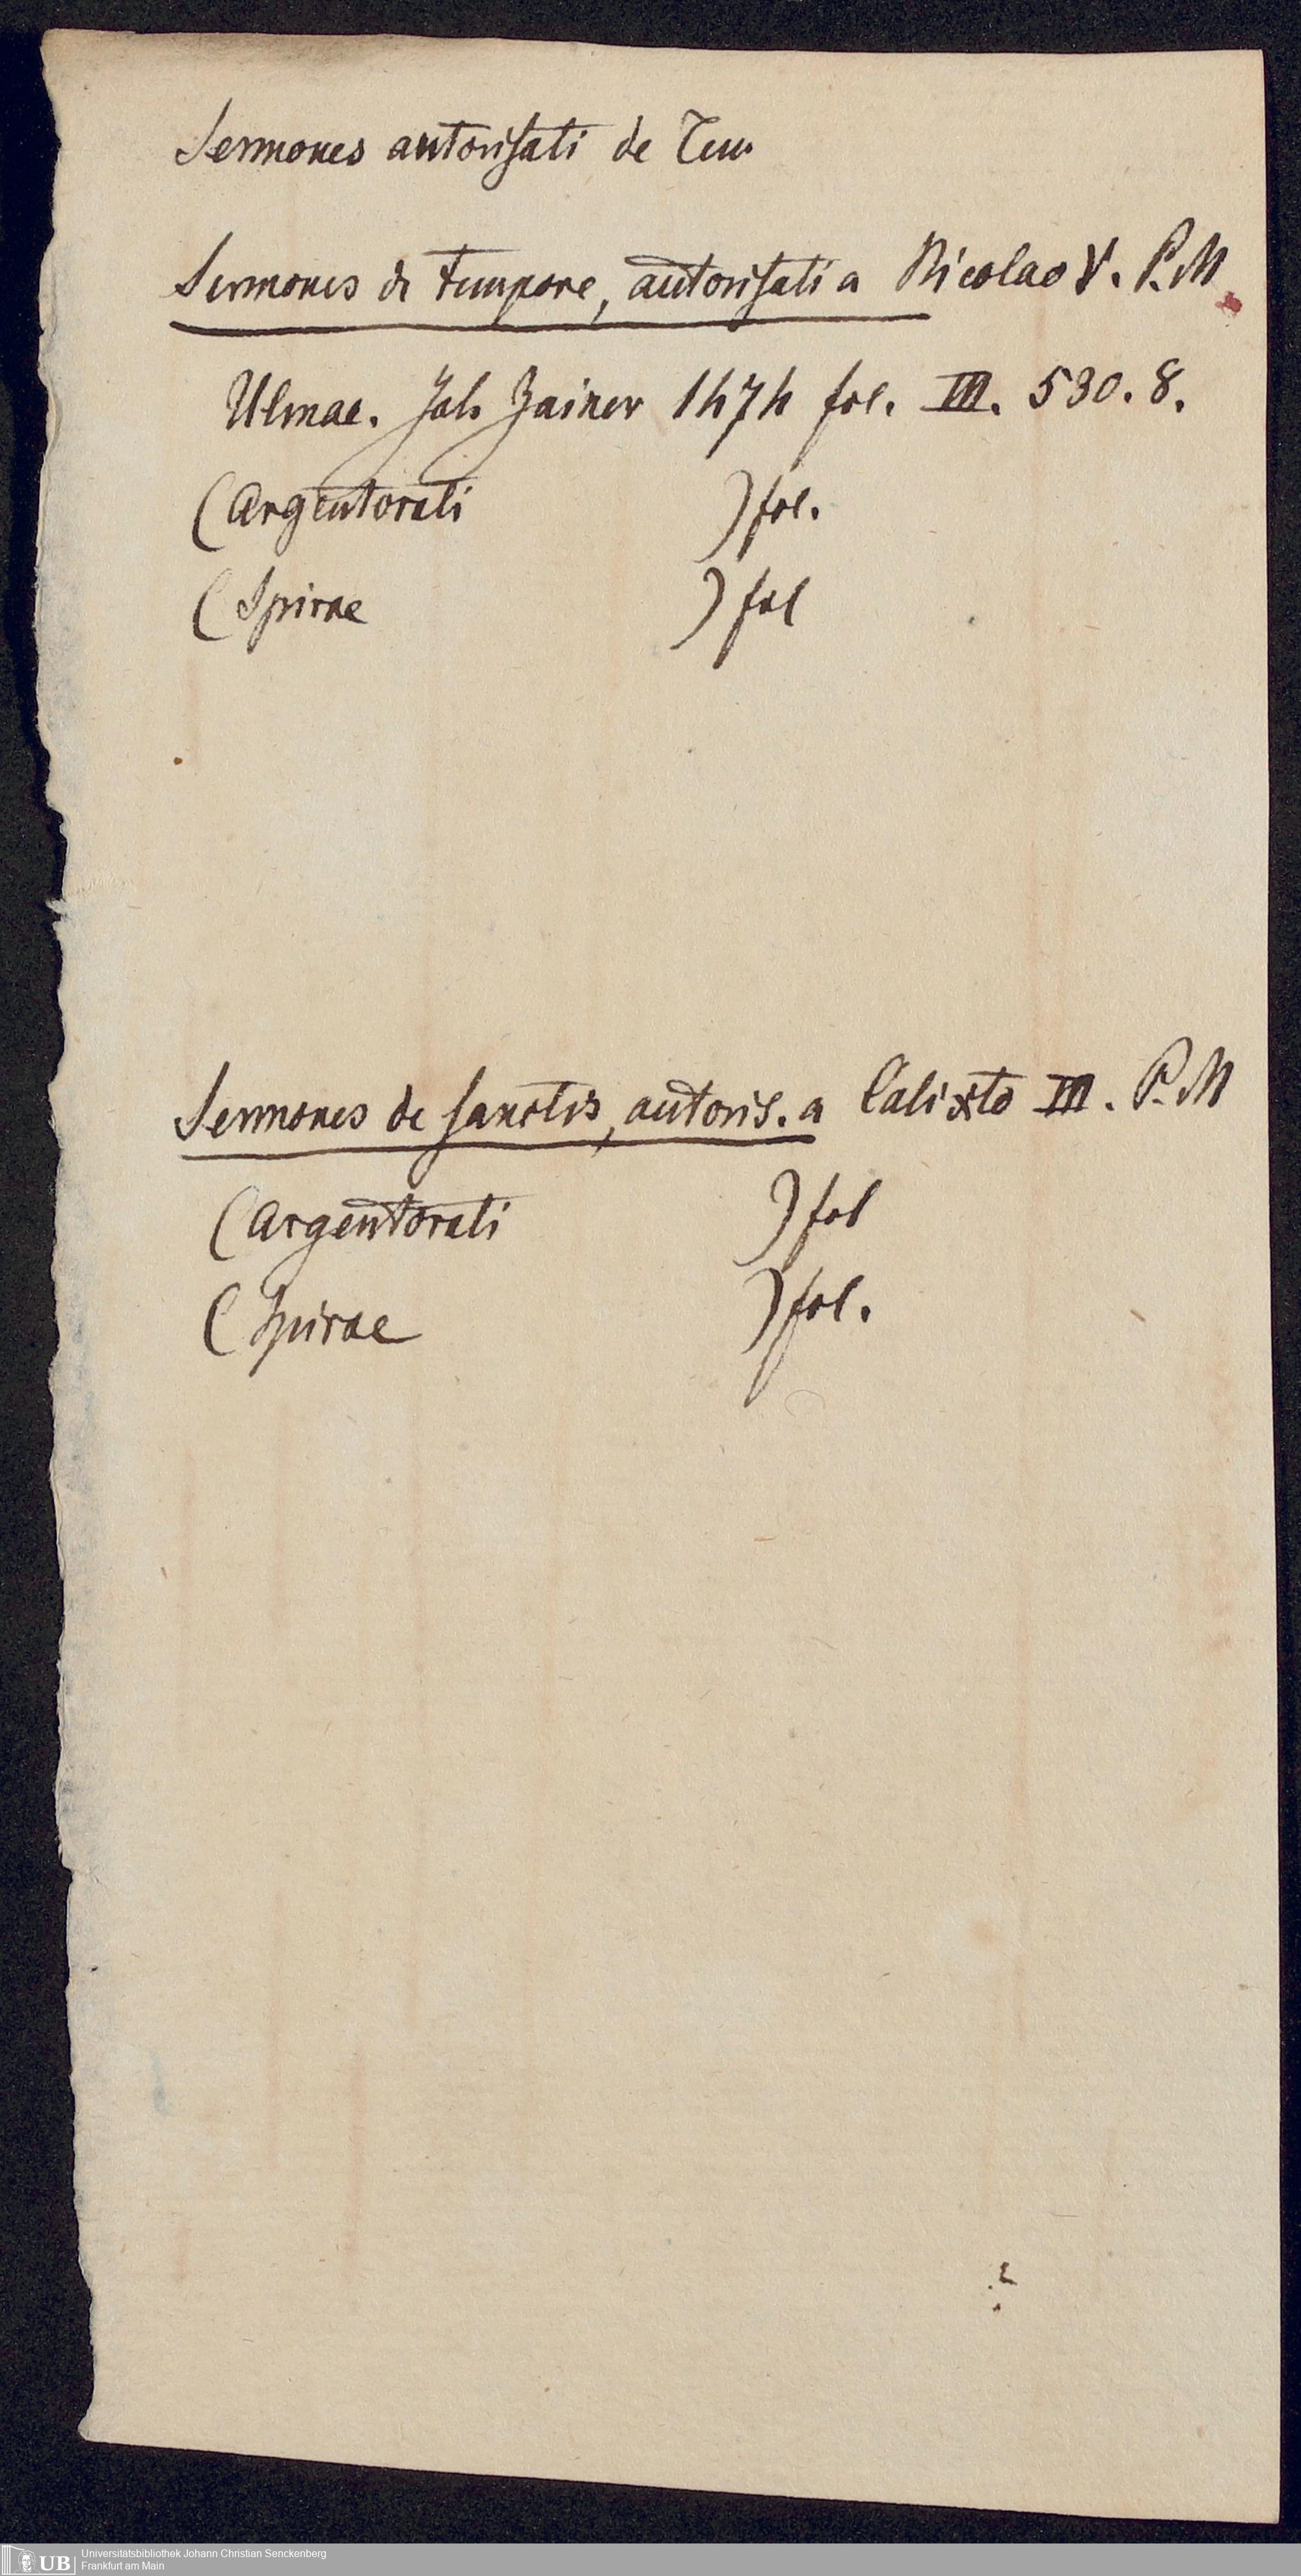 Sermones autorisati de Tem
Sermones de tempore, autorisati a Nicolao V. P. M
Ulmae. Joh. Zainer 1474 fol. III. 530. 8.
(Argentorati ) fol.
(Spirae ) fol
Sermones de sanctis, autoris. a Calixto III. P. M
(Argentorati ) fol
(Spirae ) fol.
UB
Universitätsbibliothek Johann Christian Senckenberg
Frankfurt am Main